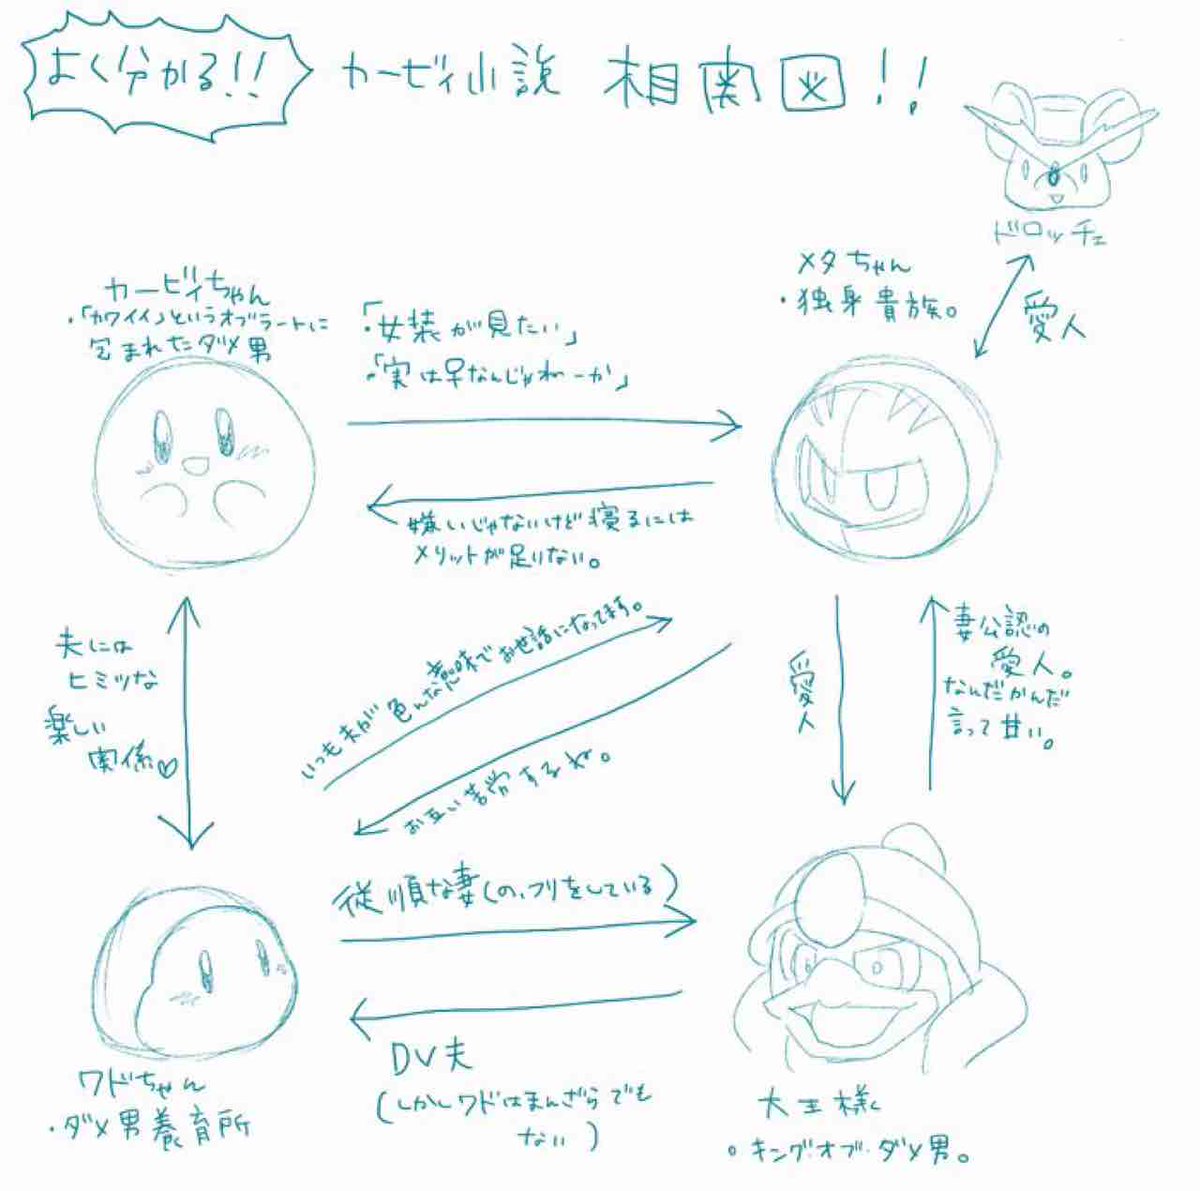 よく分かる!! カービィ小説 相関図!!
ドロッチェ
愛人
メタちゃん
・独身貴族。
カービィちゃん
・「カワイイ」というオブラートに
包まれたダメ男
・「女装が見たい」
・「実は早なんじゃねーか」
嫌いじゃないけど寝るには
メリットが足りない。
夫には
ヒミツな
楽しい
関係♡
いつも夫が色んな意味でお世話になってます。
お互い苦労するな。
愛人
妻公認の
愛人。
なんだかんだ
言って甘い。
従順な妻(の、フリをしている)
DV夫
(しかしワドはまんざらでも
ない)
ワドちゃん
・ダメ男養育所
大王様
・キングオブ・ダメ男。